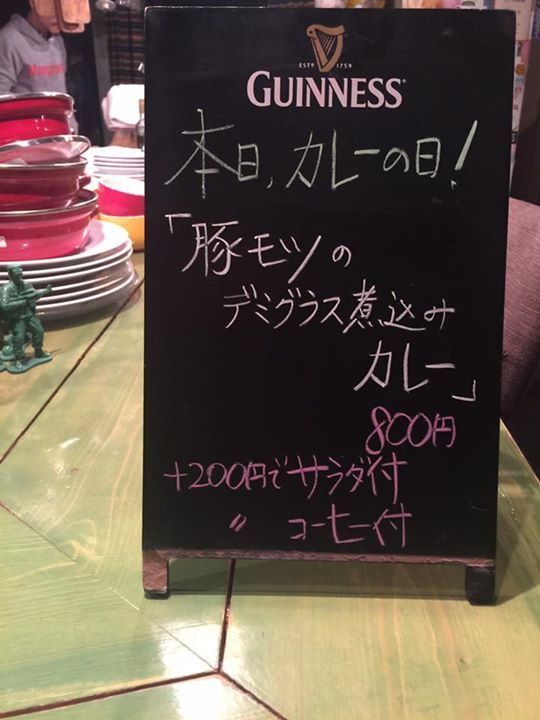 ESTD 1759
GUINNESS
本日、カレーの日!
「豚モツの
デミグラス煮込み
カレー」
800円
+200円でサラダ付
〃 コーヒー付